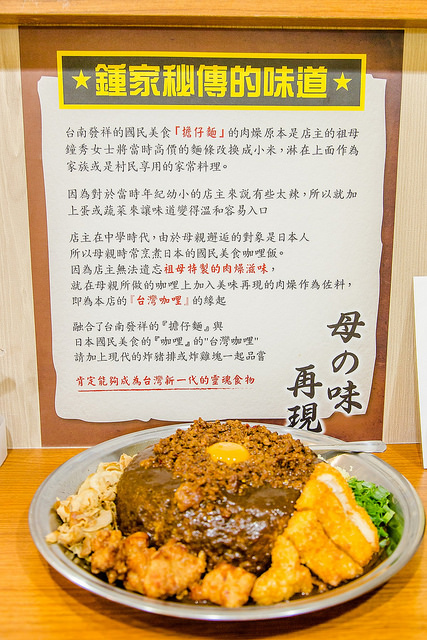 ★鍾家秘傳的味道★
台南發祥的國民美食『擔仔麵』的肉燥原本是店主的祖母
鐘秀女士將當時高價的麵條改換成小米，淋在上面作為
家族或是村民享用的家常料理。
因為對於當時年紀幼小的店主來說有些太辣，所以就加
上蛋或蔬菜來讓味道變得溫和容易入口
店主在中學時代，由於母親邂逅的對象是日本人
所以母親時常烹煮日本的國民美食咖哩飯。
因為店主無法遺忘祖母特製的肉燥滋味，
就在母親所做的咖哩上加入美味再現的肉燥作為佐料，
即為本店的『台灣咖哩』的緣起
融合了台南發祥的『擔仔麵』與
日本國民美食的『咖哩』的"台灣咖哩"
請加上現代的炸豬排或炸雞塊一起品嘗
肯定能夠成為台灣新一代的靈魂食物
母の味
再現